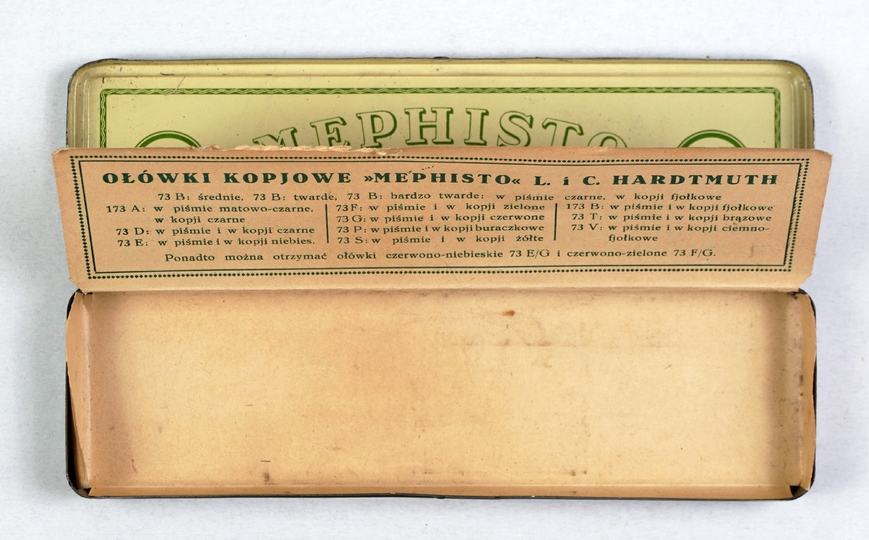 MEPHISTO
OŁÓWKI KOPJOWE »MEPHISTO« L. i C. HARDTMUTH
73 B: średnie, 73 B: twarde, 73 B: bardzo twarde: w piśmie czarne, w kopji fjołkowe
173 A: w piśmie matowo-czarne,
w kopji czarne
73 D: w piśmie i w kopji czarne
73 E: w piśmie i w kopji niebies.
73 F: w piśmie i w kopji zielone
73 G: w piśmie i w kopji czerwone
73 P: w piśmie i w kopji buraczkowe
73 S: w piśmie i w kopji żółte
173 B: w piśmie i w kopji fjołkowe
73 T: w piśmie i w kopji brązowe
73 V: w piśmie i w kopji ciemno-
fjołkowe
Ponadto można otrzymać ołówki czerwono-niebieskie 73 E/G i czerwono-zielone 73 F/G.